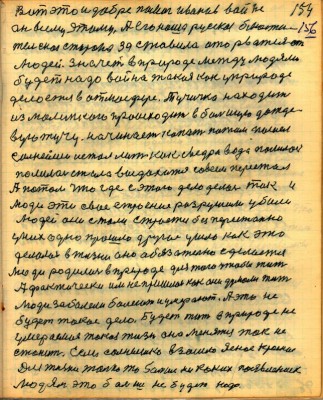 154
156
Вот это и добре такой Иванов вой не
он всему этому. А его наша русская блюсти-
тельная сторона заставила оторваться от
людей. Значет в природе между людями
будет надо война такая как в природе
делается в атмосфере. Тучичка находит
из маленького происходит в большую дожде-
вую тучу. начинает капать потом пошел
сильнейши и стал лить как с ведра вода пошла
пошла и стала выдыхатся совсем перестал
А потом это где с этого дело делось так и
люди эти свое строение разрушили убили
людей они стали строется беспрестанно
у них одно пришло другое ушло как это
делалось в жизни оно обязательно сделается
люди родились в природе для того чтобы жить
А фактически им не пришлось как они думали жить
Люди заболели болеют и умирают. А это не
будет такое дело. будет жить в природе не
умераемая такая жизнь она менятся так не
станет. Если солнышко взошло ясное красное
Для жизни только то больше никаких появлениях
людям это больше не будет надо